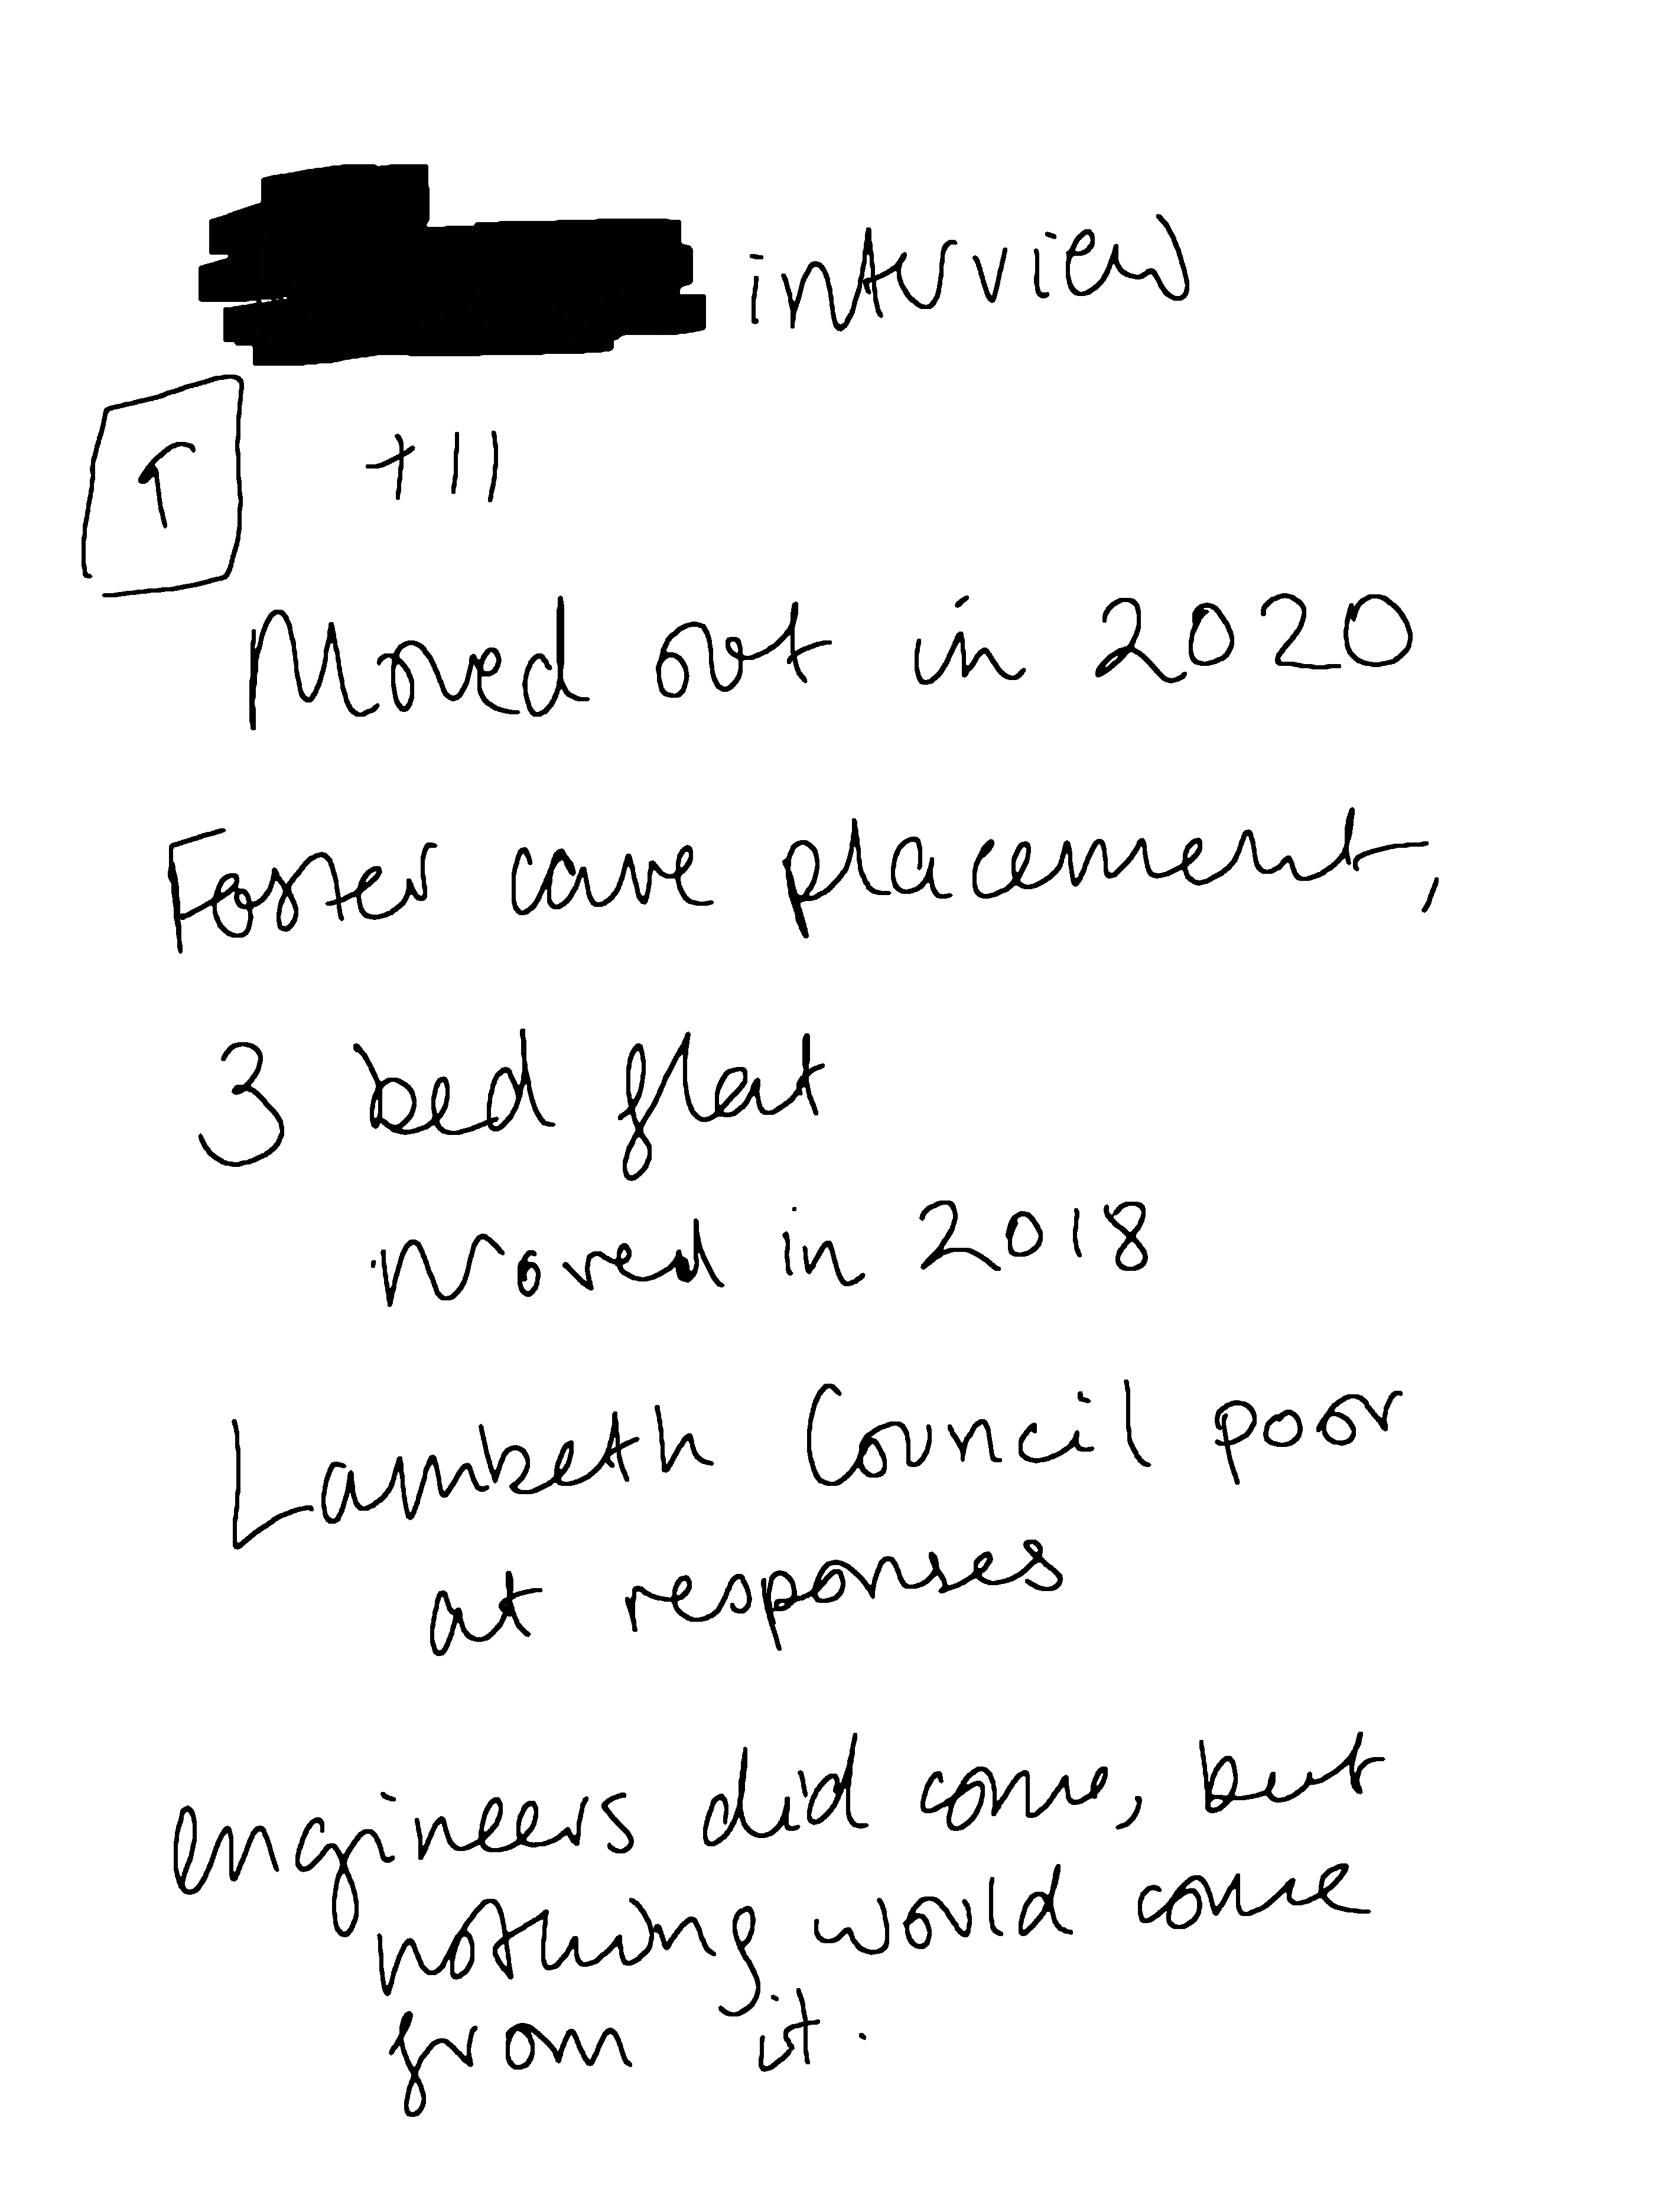 interview
1 +11
Moved out in 2020
Foster care placement,
3 bed flat
moved in 2018
Lambeth Council poor
at responses
engineers did come, but
nothing would come
from it.